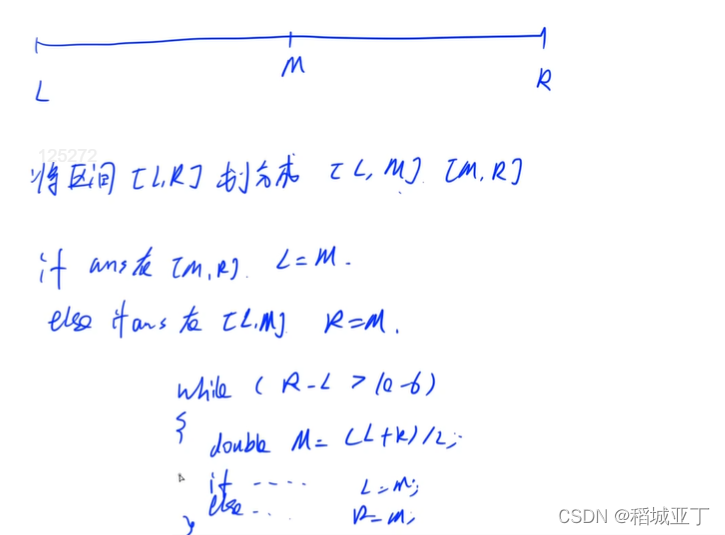 L M R
125272
将区间 [L,R] 划分成 [L,M] [M,R]
if ans在 [M,R]. L=M.
else if ans 在 [L,M] R=M.
while ( R-L > 10-6)
{
double M= (L+R)/2;
if ---- L=M;
else -.. R=M;
}
CSDN @稻城亚丁